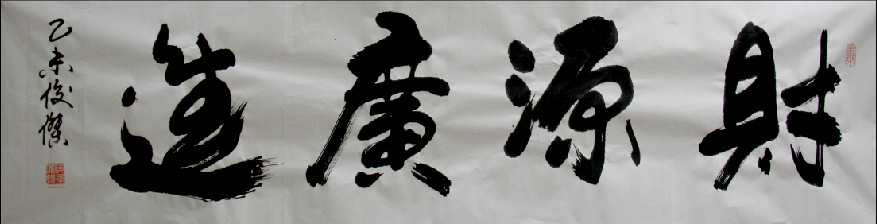 財源廣進
乙未俊傑